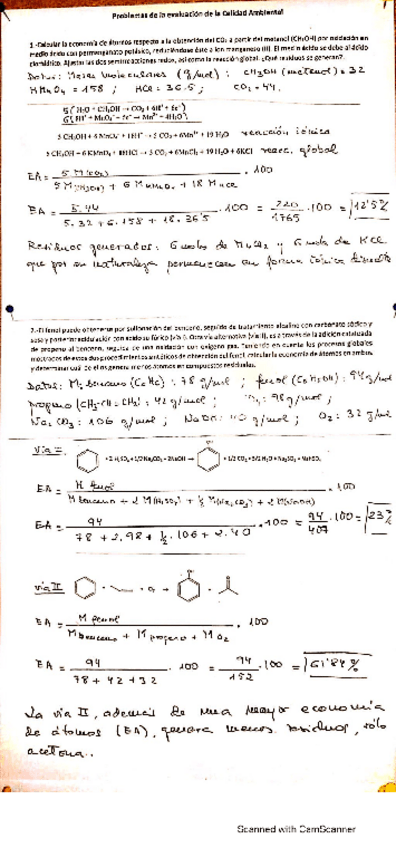 Problemas de la evaluación de la Calidad Ambiental
1.-Calcular la economía de átomos respecto a la obtención del CO₂ a partir del metanol (CH₃OH) por oxidación en
medio ácido con permanganato potásico, reduciéndose éste a ion manganeso (II). El medio ácido se debe al ácido
clorhídrico. Ajustar las dos semirreacciones redox, así como la reacción global. ¿Qué residuos se generan?.
Datos: Masas moleculares (g/mol) : CH₃OH (metanol) = 32
KMnO₄ = 158 ; HCl = 36.5 ; CO₂ = 44.
5( H₂O + CH₃OH → CO₂ + 6H⁺ + 6e⁻)
6( 8H⁺ + MnO₄⁻ + 5e⁻ → Mn²⁺ + 4H₂O)
5 CH₃OH + 6 MnO₄⁻ + 18H⁺ → 5 CO₂ + 6Mn²⁺ + 19 H₂O reacción iónica
5 CH₃OH + 6 KMnO₄ + 18HCl → 5 CO₂ + 6MnCl₂ + 19 H₂O + 6KCl reacc. global
EA = 5 M(CO₂) / 5 M(CH₃OH) + 6 M KMnO₄ + 18 M HCl . 100
EA = 5.44 / 5.32 + 6.158 + 18.36'5 . 100 = 220 / 1765 . 100 = 12'5%
Residuos generados: 6 mols de MnCl₂ y 6 mols de KCl
que por su naturaleza permanecen en forma iónica disuelta
2.-El fenol puede obtenerse por sulfonación del benceno, seguido de tratamiento alcalino con carbonato sódico y
sosa y posterior acidulación con ácido sulfúrico (vía I). Otra vía alternativa (vía II), es a través de la adición catalizada
de propeno al benceno, seguida de una oxidación con oxígeno gas. Teniendo en cuenta los procesos globales
mostrados de estos dos procedimientos sintéticos de obtención del fenol, calcular la economía de átomos en ambos
y determinar cuál de ellos genera menos átomos en compuestos residuales.
Datos: M: benceno (C₆H₆) : 78 g/mol ; fenol (C₆H₅OH) : 94 g/mol
propeno (CH₃-CH=CH₂) : 42 g/mol ; : 98 g/mol ;
Na₂CO₃ : 106 g/mol ; NaOH : 40 g/mol ; O₂ : 32 g/mol
Vía I
+ 2 H₂SO₄ + 1/2 Na₂CO₃ + 2NaOH → + 1/2 CO₂ + 5/2 H₂O + Na₂SO₃ +
EA = M fenol / M benceno + 2 M(H₂SO₄) + ½ M(Na₂CO₃) + 2 M(NaOH) . 100
EA = 94 / 78 + 2.98 + ½ . 106 + 2.40 . 100 = 94 / 407 . 100 = 23%
vía II
EA = M fenol / M benceno + M propeno + M O₂ . 100
EA = 94 / 78 + 42 + 32 . 100 = 94 / 152 . 100 = 61'84%
La vía II, además de una mayor economía
de átomos (EA), genera menos residuos, sólo
acetona..
Scanned with CamScanner